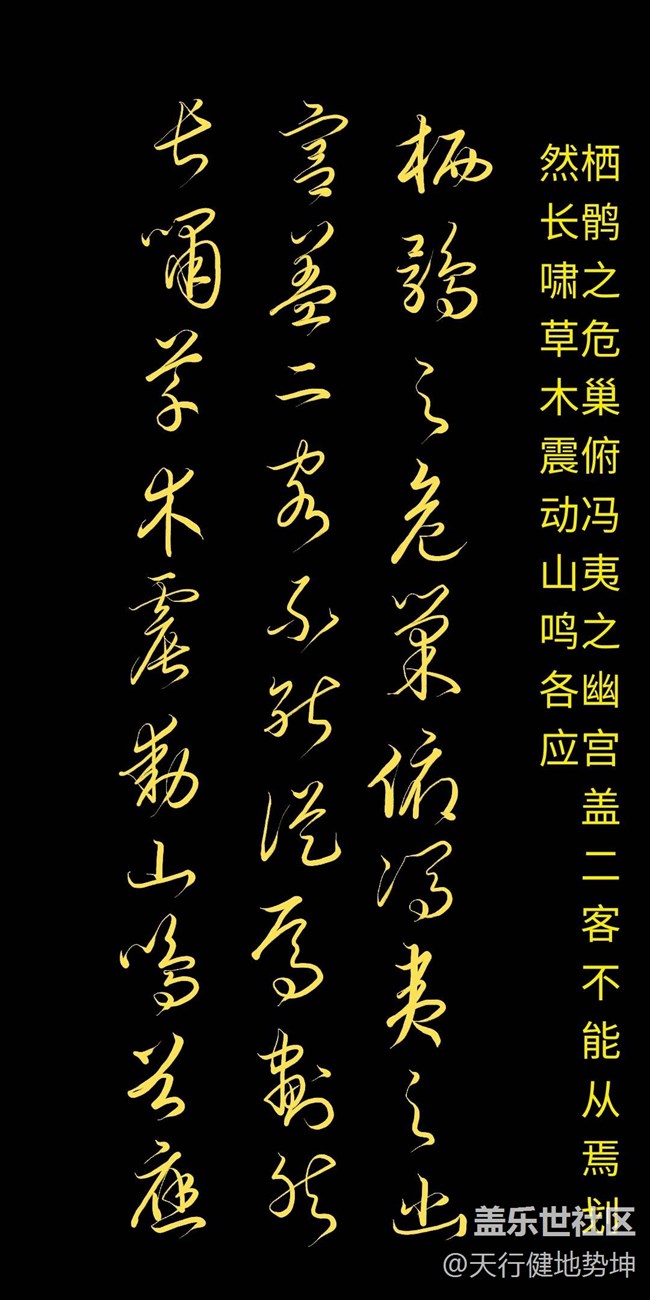 栖鹘之危巢俯冯夷之幽宫盖二客不能从焉划
然长啸草木震动山鸣各应
栖鶻之危巢俯馮夷之幽
宮盖二客不能從焉劃然
長嘯草木震動山鳴谷應
盖乐世社区
@天行健地势坤